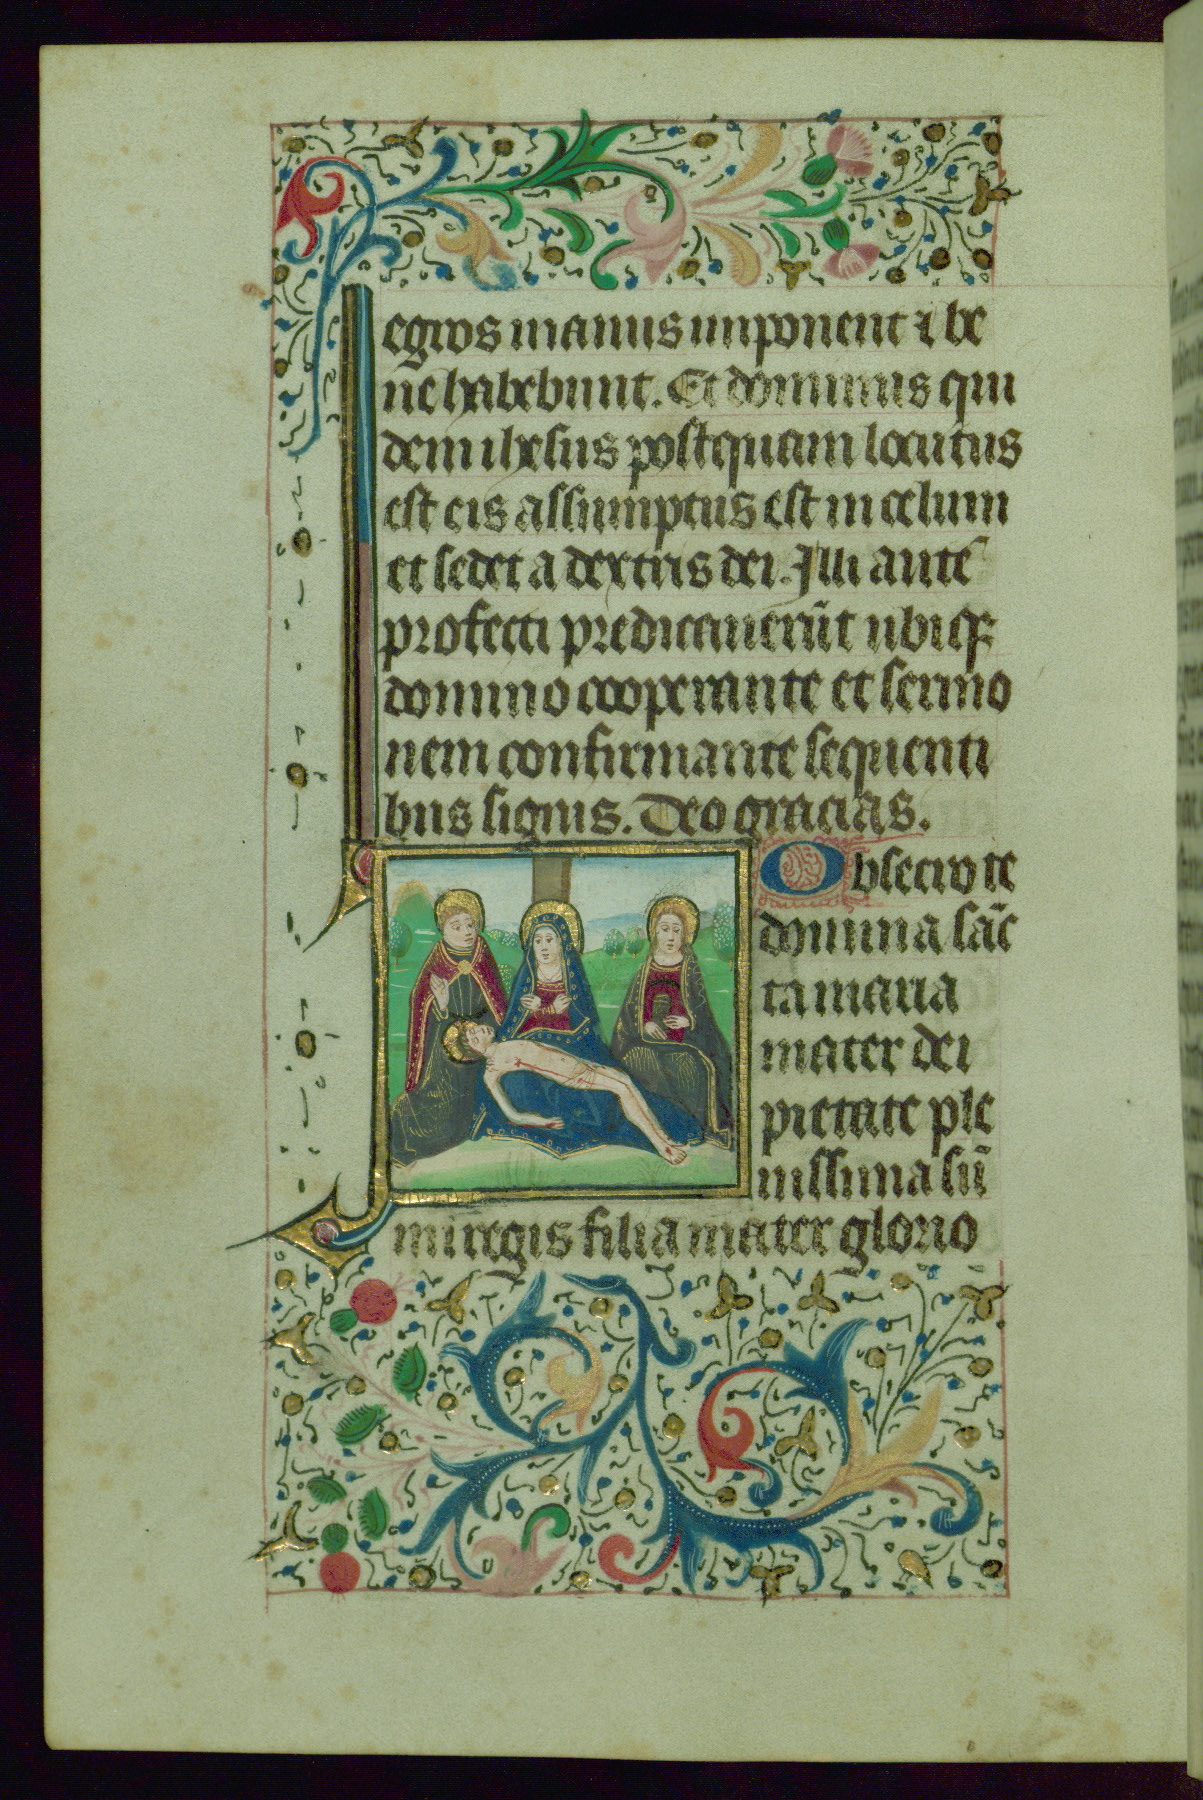 egros manus imponent ⁊ be
ne habebunt. Et dominus qui
dem ihesus postquam locutus
est eis assumptus est in celum
et sedet a dextris dei. Illi autē
profecti predicauerūt ubiqꝫ
domino cooperante et sermo
nem confirmante sequenti
bus signis. Deo gracias.
Obsecro te
domina sāc
ta maria
mater dei
pietate ple
nissima sū
mi regis filia mater glorio